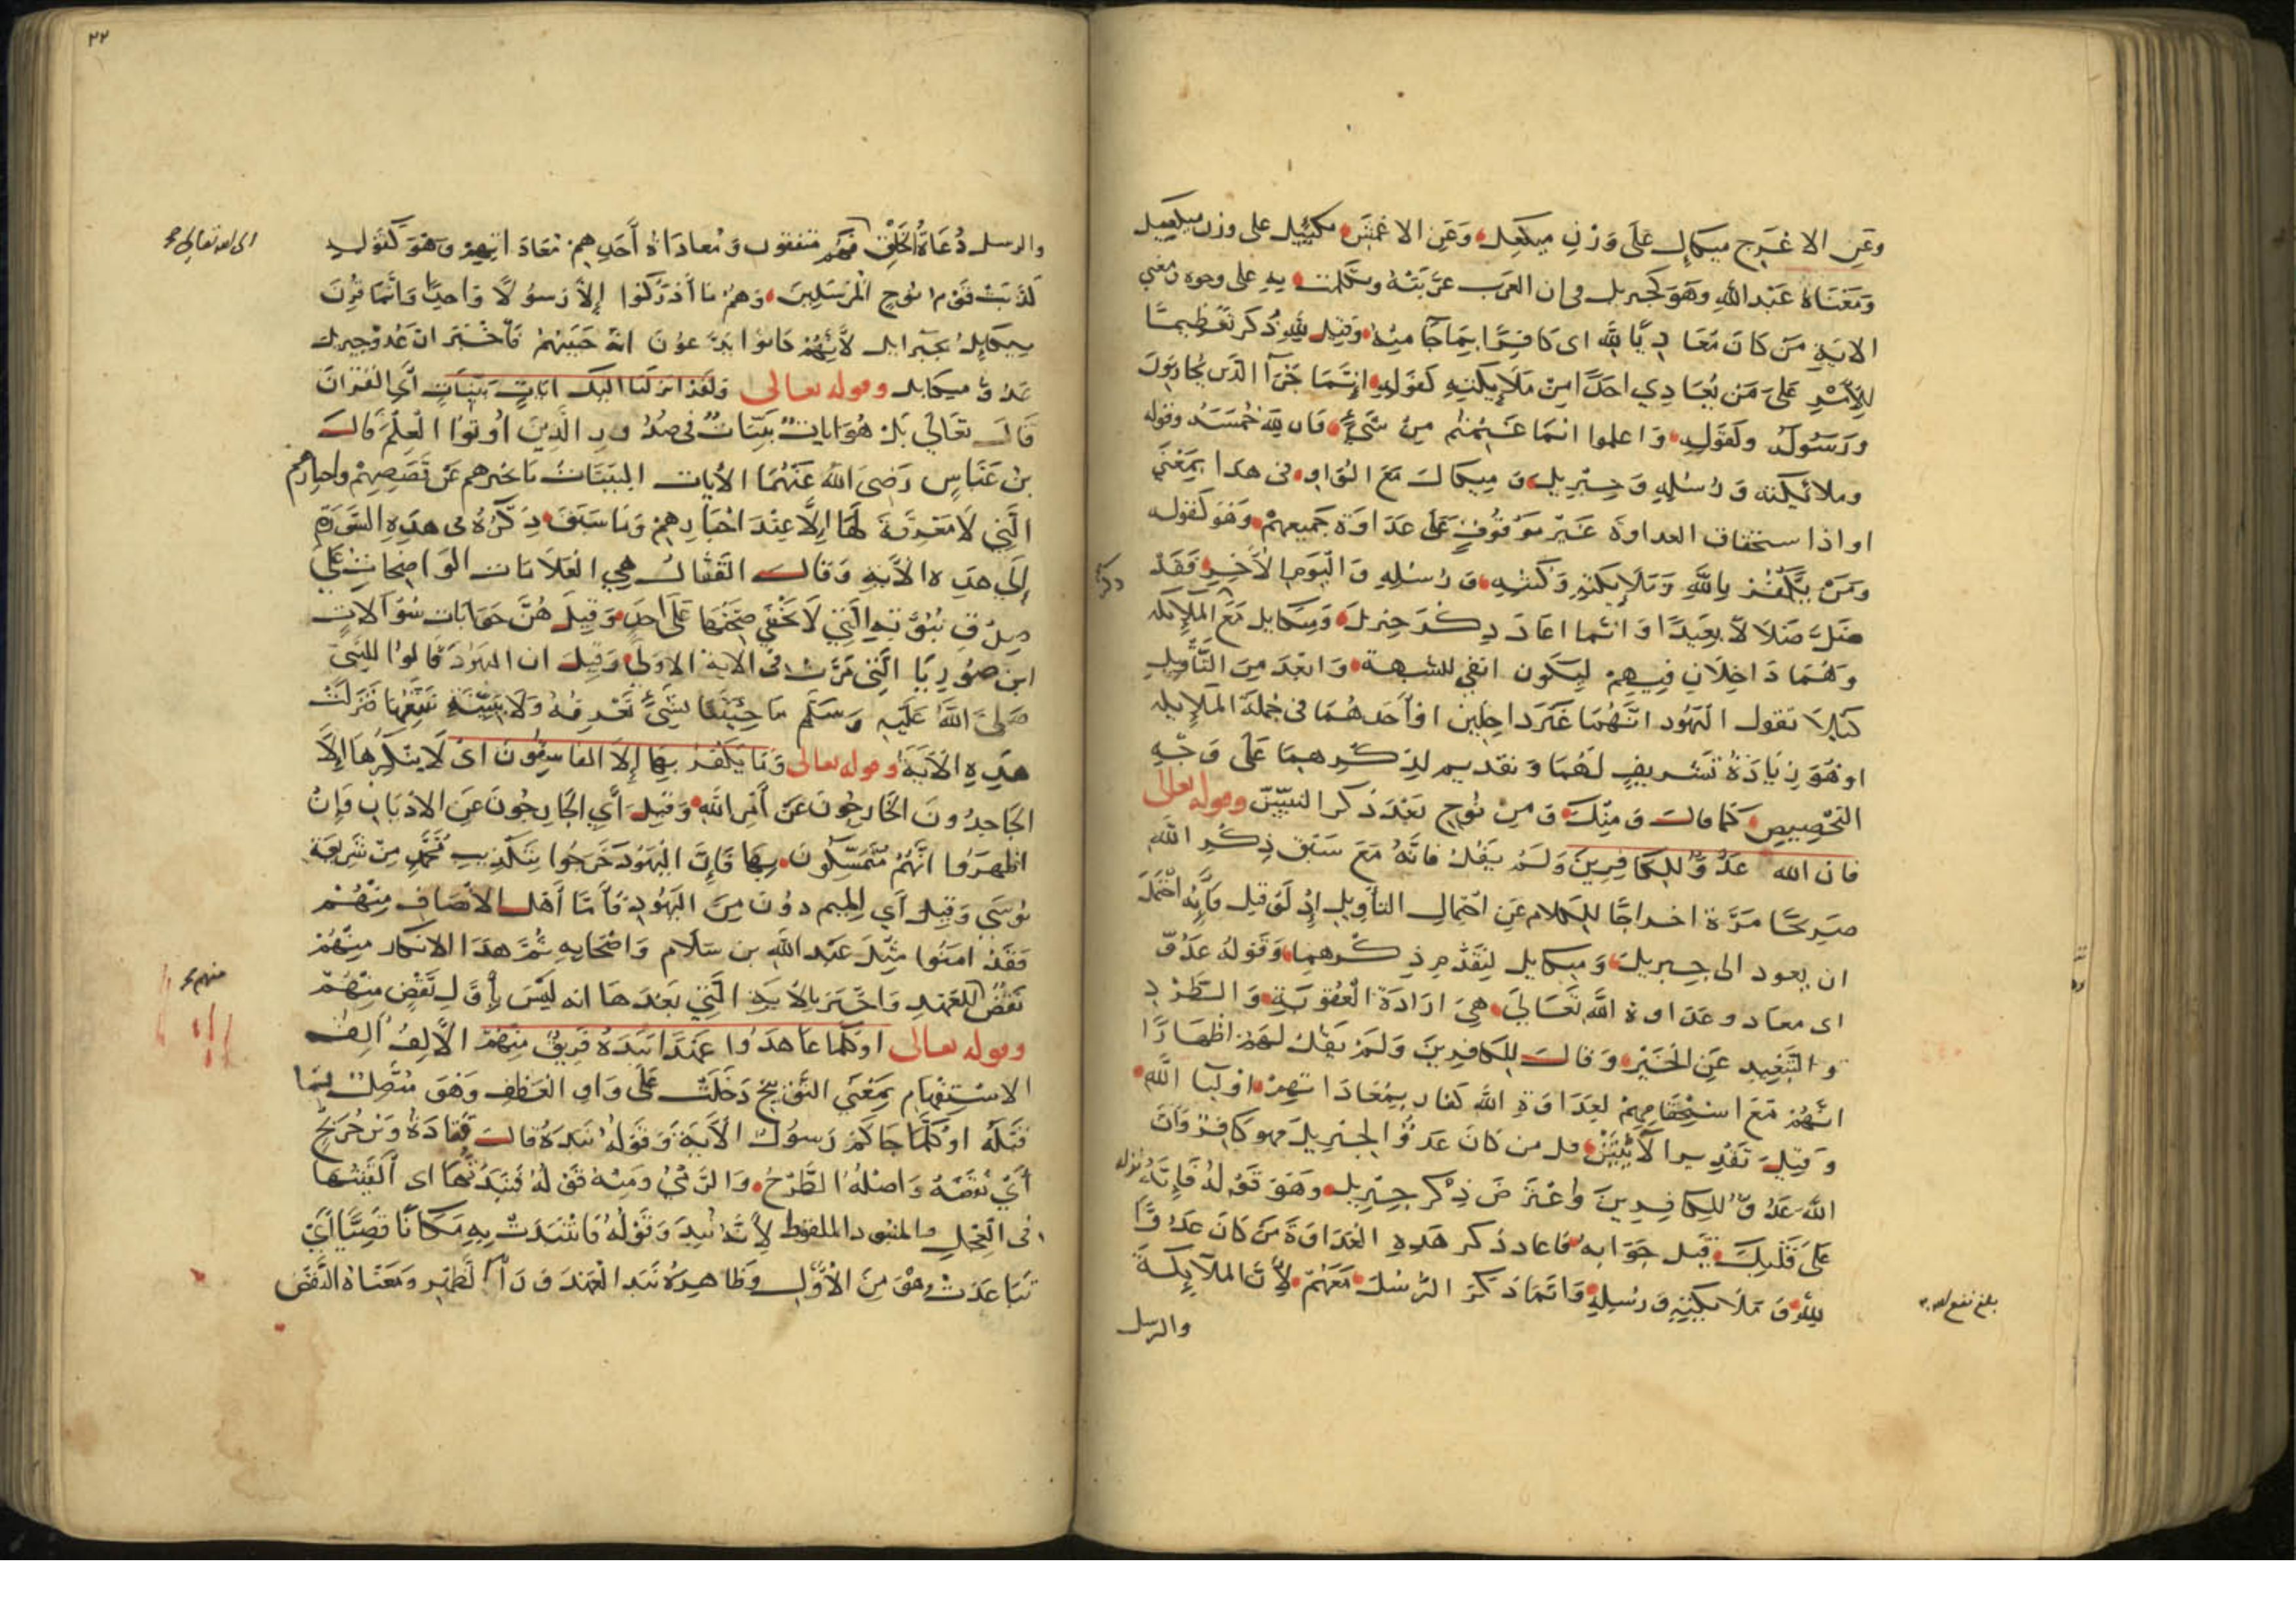 وعن الاعرج ميكال على وزن ميكعل وعن الاعمش مكييل على وزن ميكعيل
ومعناه عبد الله وهو كجبريل في ان العرب عربته وتكلمت به على وجوه ومعنى
الاية من كان معاديا لله اى كافرا بما جا منه وقيل لله ذكر تعظيما
للامر على من يعادي احدا من ملايكته كقوله انما جزآ الذين يحاربون
ورسوله ولقوله واعلموا انما غنمتم من شيء فان لله خمسه وقوله
وملائكته ورسله وجبريل وميكال مع الواو في هذا بمعنى
او اذا ستحقاق العداوة غير موقوف على عداوة جميعهم وهو كقوله
ومن يكفر بالله وملايكته وكتبه ورسله واليوم الآخر فقد
ضل ضلالا بعيدا وانما اعاد ذكر جبريل وميكايل مع الملايكه
وهما داخلان فيهم ليكون انفى للشبهة وابعد من التأويل
كيلا تقول اليهود انهما غير داخلين او أحدهما في جملة الملايكه
او هو زيادة تشريف لهما وتقديم لذكرهما على وجه
التخصيص كما قالت ومنك ومن نوح بعد ذكر النبيين وقوله تعالى
فان الله عدو للكافرين ولم يقل فانه مع سبق ذكر الله
صريحا مرة اخراجا للكلام عن احتمال التأويل إذ لو قيل فإنه احتمل
ان يعود الى جبريل وميكايل لتقدم ذكرهما وقوله عدو
اى معاد وعداوة الله تعالى هى ارادة العقوبة والطرد
والتبعيد عن الخير وقال للكافرين ولم يقل لهم اظهارا
انهم مع استحقاقهم لعداوة الله كفار بمعاداتهم اوليا الله
وقيل تقدير الآيتين قل من كان عدوا لجبريل فهو كافر وان
الله عدو للكافرين واعترض ذكر جبريل وهو قوله فإنه نزله
على قلبك قبل جوابه فاعاد ذكر هذه العداوة من كان عدوا
لله وملايكته ورسله وانما ذكر الرسل معهم لأن الملآيكة
والرسل
ذكر
بلغ
٢٢
والرسل دعاة الخلق فهم متفقون ومعاداة أحدهم معاداتهم وهو كقوله
كذبت قوم نوح المرسلين وهم ما أدركوا إلا رسولا واحدا وانما قرن
ميكايل بجبرايل لأنهم كانوا يدعون انه حبيبهم فأخبر ان عدو جبريل
عدو ميكايل وقوله تعالى ولقد انزلنا اليك ايات بينات أي القران
قال تعالى بل هو ايات بينات في صدور الذين اوتوا العلم قال
بن عباس رضى الله عنهما الآيات البينات ما خبرهم عن قصصهم واخبارهم
التي لا معرفة لها إلا عند احبارهم وما سبق ذكره في هذه السورة
إلى هذه الآية وقال القفال هي العلامات الواضحات على
صدق نبوته التي لا تخفى صحتها على احد وقيل هن جوابات سؤالات
ابن صوريا التي مرت في الاية الاولى وقيل ان اليهود قالوا للنبي
صلى الله عليه وسلم ما جيتنا بشيء نعرفه ولا بينة نتبعها فنزلت
هذه الآية وقوله تعالى وما يكفر بها إلا الفاسقون اى لا ينكرها إلا
الجاحدون الخارجون عن أمر الله وقيل أي الخارجون عن الاديان وإن
اظهروا انهم متمسكون بها فإن اليهود خرجوا بتكذيب محمد من شريعة
موسى وقيل أي الميم دون من اليهود فأما أهل الانصاف منهم
وقد امنوا مثل عبد الله بن سلام واصحابه ثم هذا الانكار منهم
نقض للعهد واخبر بالآية التي بعدها انه ليس بأول نقض منهم
وقوله تعالى اوكلما عاهدوا عهدا نبذه فريق منهم الألف ألف
الاستفهام بمعنى التوبيخ دخلت على واو العطف وهو متصل بما
قبله اوكلما جاكم رسول الآية وقوله نبذه قالت قتادة وبن جريج
أي نقضه واصله الطرح والرمي ومنه قوله فنبذتها اى ألقيتها
في العجل والمنبوذ الملقوط لأنه نبذ وقوله فانتبذت به مكانا قصيا أي
تباعدت وهو من الأول وظاهره نبذ العهد ورآ الظهر ومعناه النقض
الى الله تعالى
منهم